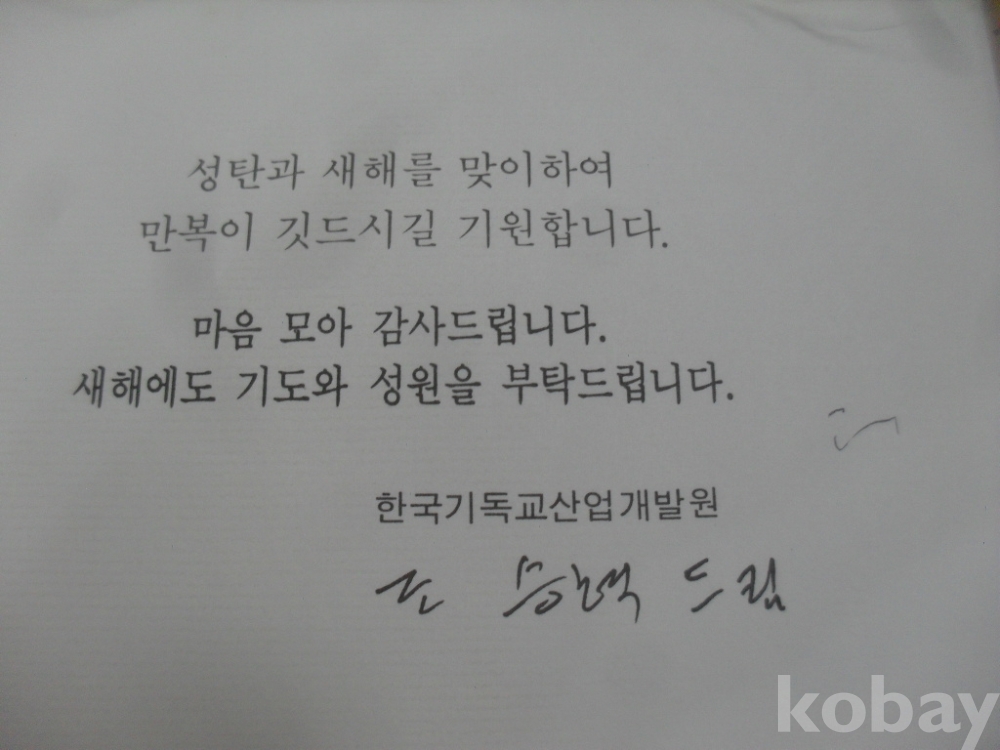 성탄과 새해를 맞이하여
만복이 깃드시길 기원합니다.
마음 모아 감사드립니다.
새해에도 기도와 성원을 부탁드립니다.
한국기독교산업개발원
드림
kobay